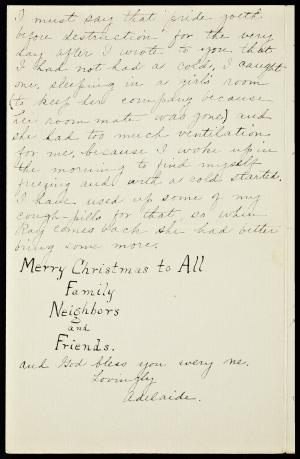 I must say that "pride goeth
before destruction" for the very
day after I wrote to you that
I had not had a cold, I caught
one, sleeping in a girl's room
(to keep her company because
her room mate was gone,) and
she had too much ventilation
for me, because I woke up in
the morning to find myself
freezing and with a cold started.
I have used up some of my
cough-pills for that, so when
Ray comes back she had better
bring some more.
Merry Christmas to All
Family
Neighbors
and
Friends.
and God bless you every one.
Lovingly
Adelaide.